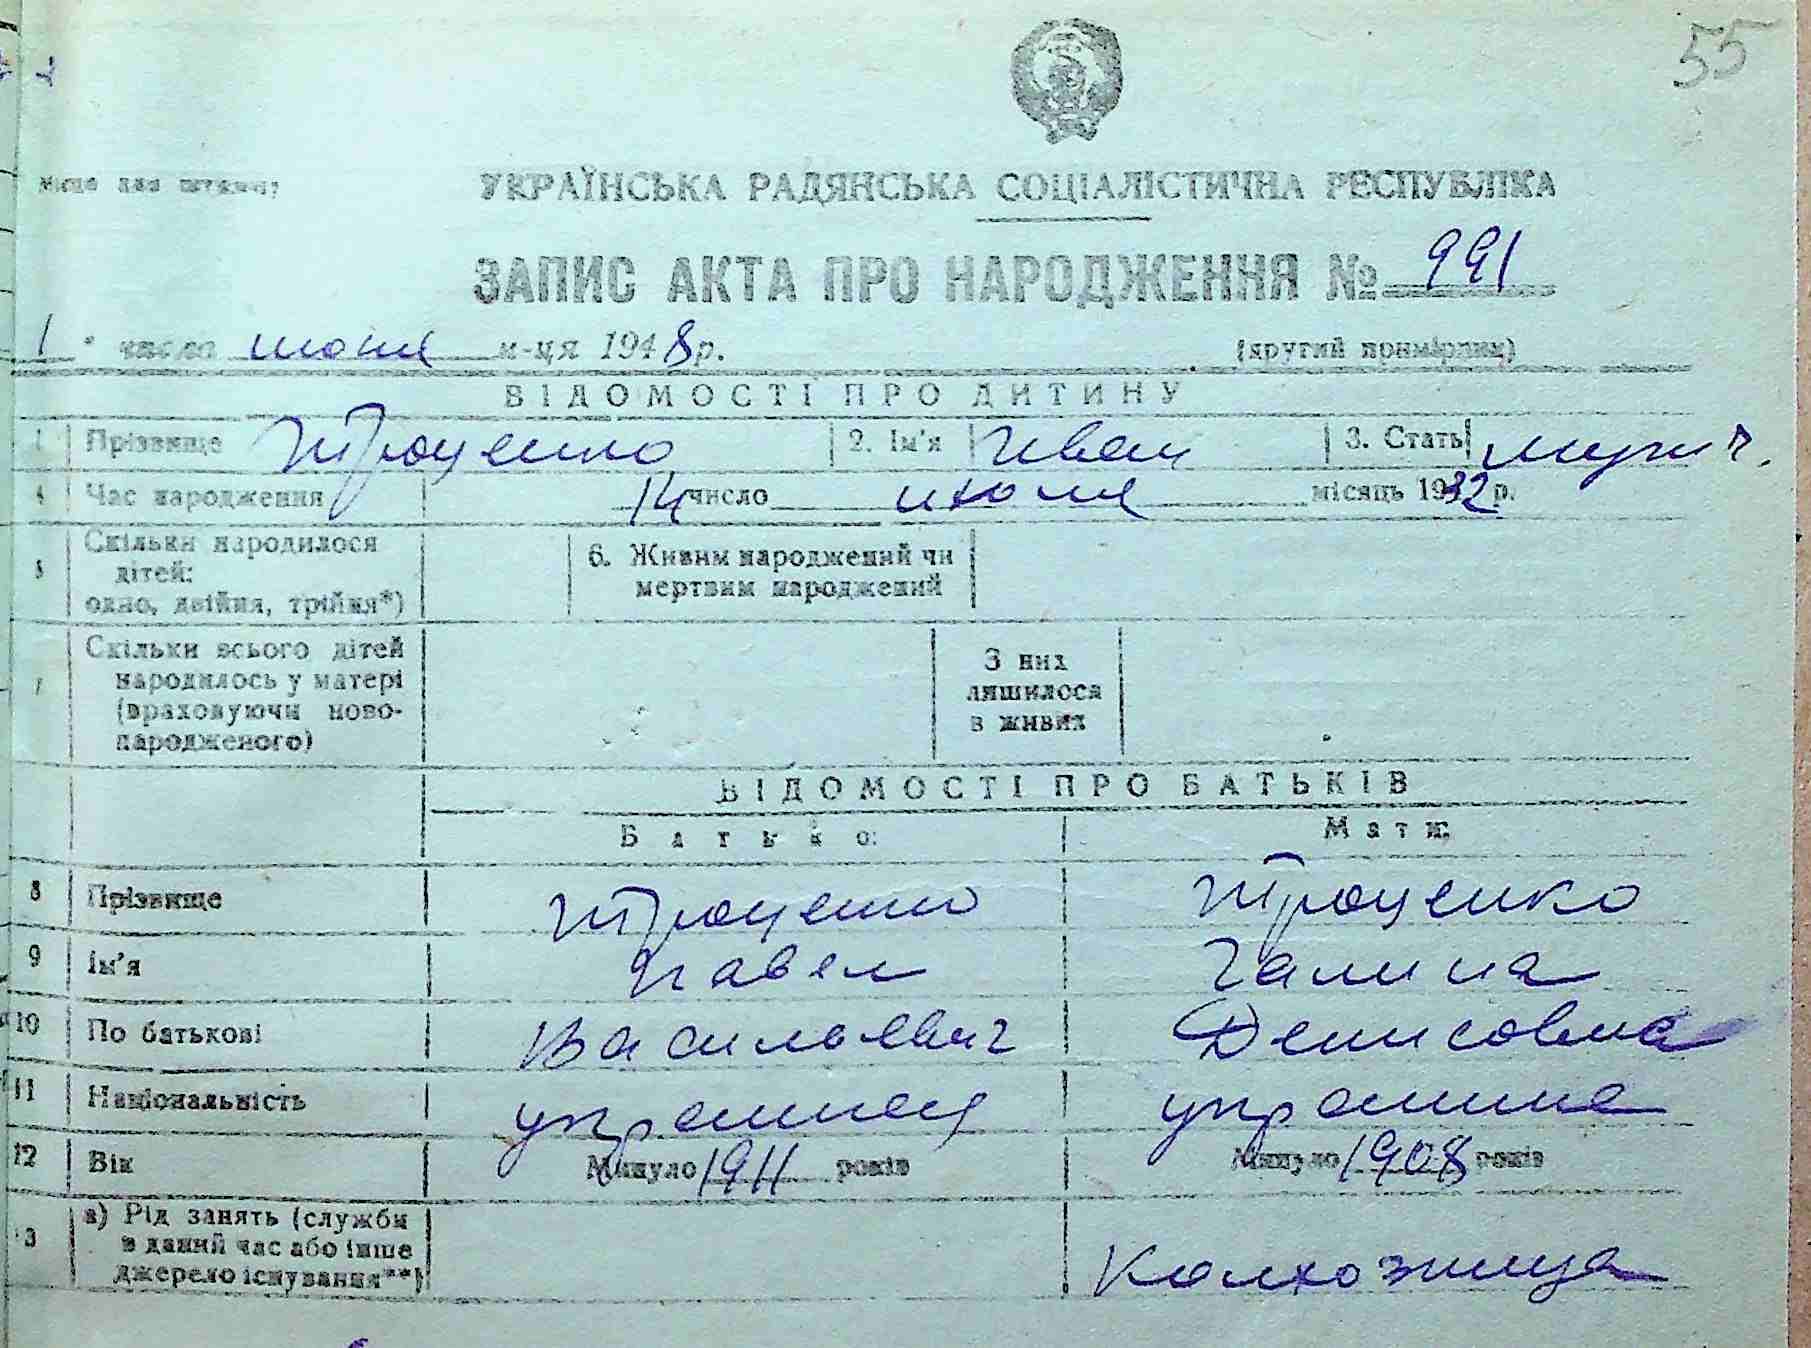 55
Місце для штампу
УКРАЇНСЬКА РАДЯНСЬКА СОЦІАЛІСТИЧНА РЕСПУБЛІКА
ЗАПИС АКТА ПРО НАРОДЖЕННЯ № 991
1 " число июня м-ця 1948 р. (другий примірник)
ВІДОМОСТІ ПРО ДИТИНУ
1 Прізвище Троценко 2. Ім'я Иван 3. Стать мужич.
4 Час народження 14 число июля місяць 1932 р.
5 Скільки народилося дітей: одно, двійня, трійня*) 6. Живим народжений чи мертвим народжений
7 Скільки всього дітей народилось у матері (враховуючи новонародженого) З них лишилося в живих
ВІДОМОСТІ ПРО БАТЬКІВ
Батько: Мати:
8 Прізвище Троценко Троценко
9 Ім'я Павел Галина
10 По батькові Васильевич Денисовна
11 Національність украинец украинка
12 Вік Минуло 1911 років Минуло 1908 років
13 а) Рід занять (служби в даний час або інше джерело існування**) Колхозница